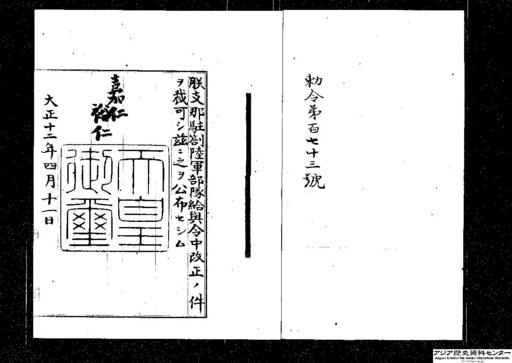 勅令第百七十三號
朕支那駐剳陸軍部隊給與令中改正ノ件
ヲ裁可シ玆ニ之ヲ公布セシム
嘉仁
裕仁
天皇
御璽
大正十二年四月十一日
アジア歴史資料センター
Japan Center for Asian Historical Records